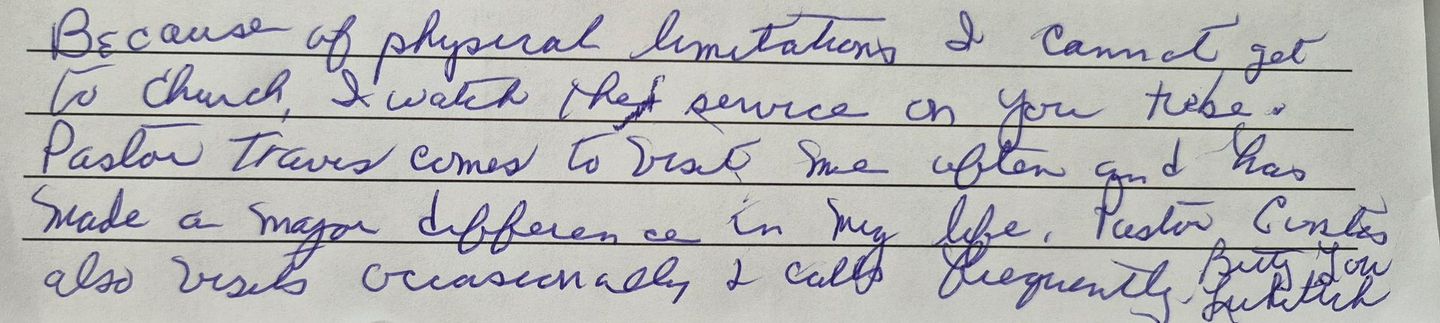 Because of physical limitations I cannot get
to church, I watch the service on you tube.
Pastor Travis comes to visit me often and has
made a major difference in my life. Pastor
also visits occasionally & calls frequently